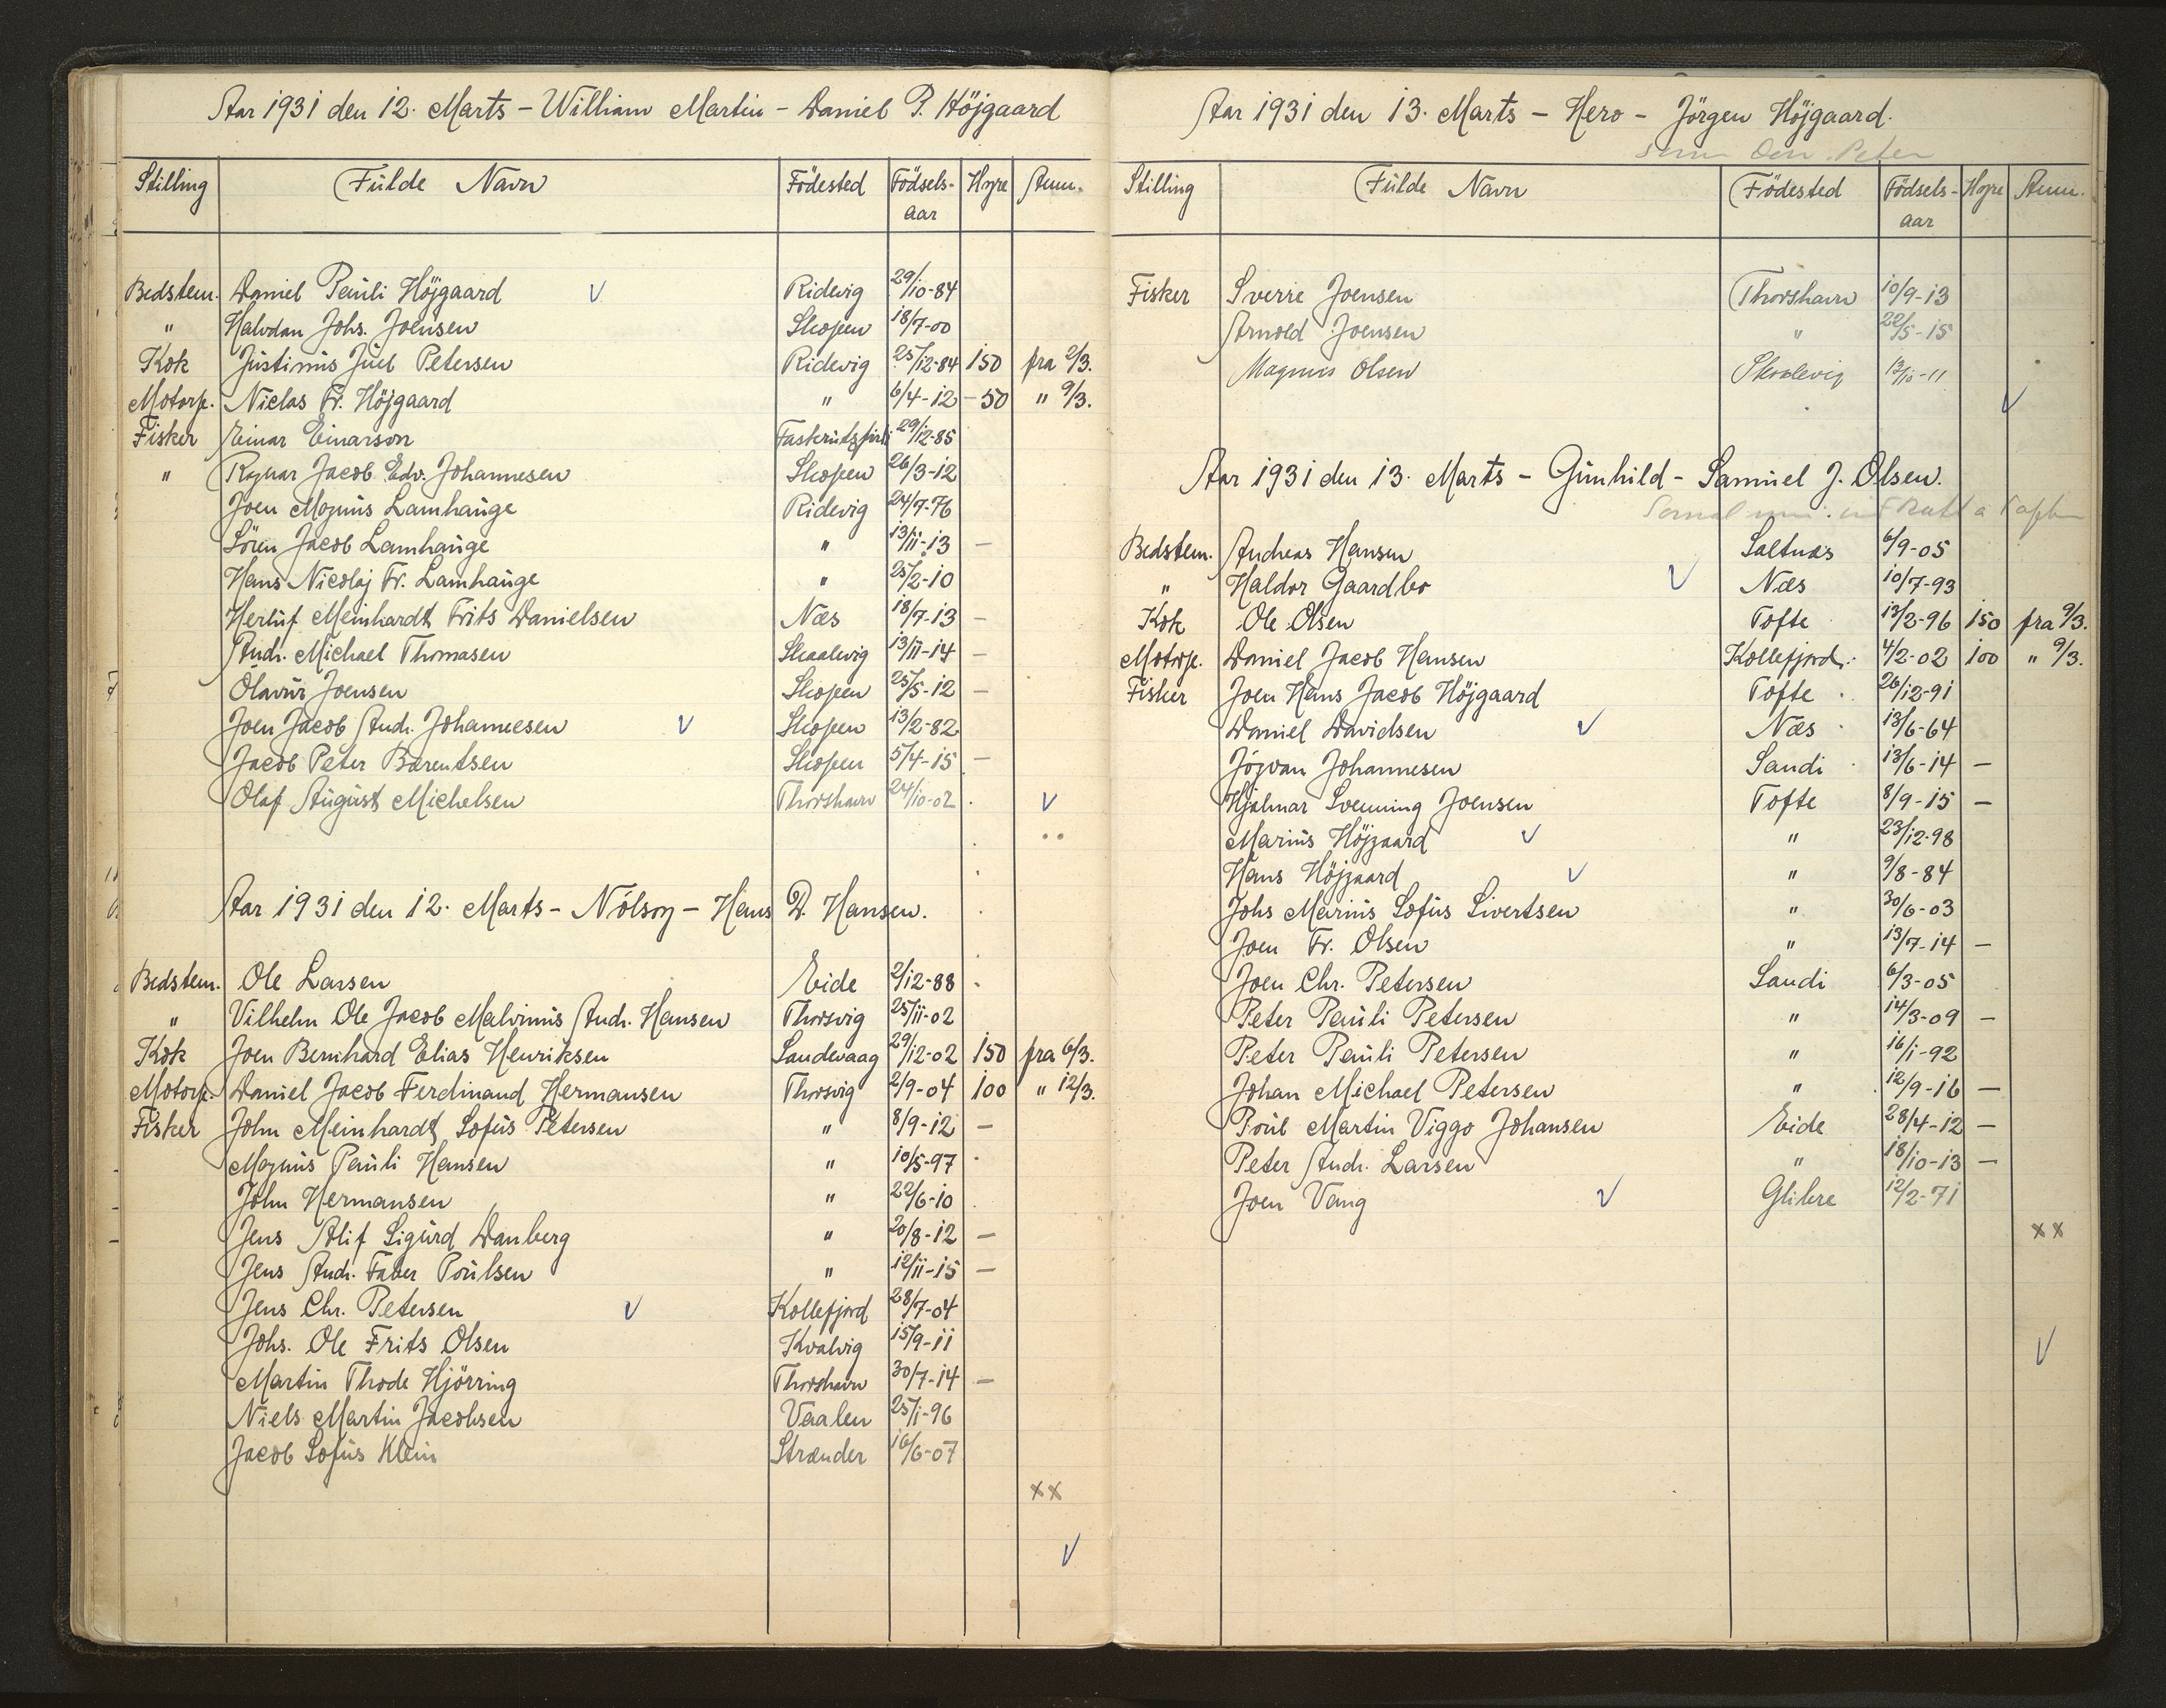 Aar 1931 den 12. Marts - William Martin - Daniel P. Höjgaard
Stilling Fulde Navn Födested Födsels-aar Hyre Anm.
Bedstem. Daniel Pauli Höjgaard V Ridevig 29/10-84
" Halvdan Johs. Joensen Skopen 18/7-00
Kok Justinus Juel Petersen Ridevig 25/12-84 150 fra 2/3.
Motorp. Niclas Fr. Höjgaard " 6/4-12 - 50 " 9/3.
Fisker Einar Einarson 29/12-85
" Ragnar Jacob Edv. Johannesen Skopen 26/3-12
Joen Magnus Lamhauge Ridevig 24/9-76
Sören Jacob Lamhauge " 13/11-13 -
Hans Nicolaj Fr. Lamhauge " 25/2-10
Herluf Meinhardt Frits Danielsen Næs 18/7-13 -
Andr. Michael Thomasen Skaalevig 13/11-14 -
Ólavur Joensen Skopen 25/5-12 -
Joen Jacob Andr. Johannesen V Skopen 13/2-82
Jacob Peter Bærentsen Skopen 5/4-15 -
Olaf August Michelsen Thorshavn 24/10-02 V
Aar 1931 den 12. Marts - Nólsoy - Hans D. Hansen.
Bedstem. Ole Larsen Eide 2/12-88
" Vilhelm Ole Jacob Malvinus Andr. Hansen Thorsvig 25/11-02
Kok Joen Bernhard Elias Henriksen Sandevaag 29/12-02 150 fra 6/3.
Motorp. Daniel Jacob Ferdinand Hermansen Thorsvig 2/9-04 100 " 12/3.
Fisker John Meinhardt Sofus Petersen " 8/9-12 -
Magnus Pauli Hansen " 10/5-97
John Hermansen " 22/6-10
Jens Alif Sigurd Danberg " 20/8-12 -
Jens Andr. Faber Poulsen " 12/11-15 -
Jens Chr. Petersen V Kollefjord 28/7-04
Johs. Ole Frits Olsen Kvalvig 15/9-11
Martin Thode Hjörring Thorshavn 30/7-14 -
Niels Martin Jacobsen Vaalen 25/1-96
Jacob Sofus Klein Strænder 16/6-07
xx
V
Aar 1931 den 13. Marts - Hero - Jörgen Höjgaard.
Peter
Stilling Fulde Navn Födested Födsels-aar Hyre Anm.
Fisker Sverre Joensen Thorshavn 10/9-13
Arnold Joensen " 22/5-15
Magnus Olsen Skaalevig 12/10-11
V
Aar 1931 den 13. Marts - Gunhild - Samuel J. Olsen.
Bedstem. Andreas Hansen Saltnæs 6/9-05
" Haldor Gaardbo V Næs 10/7-93
Kok Ole Olsen Tofte 12/2-96 150 fra 9/3.
Motorp. Daniel Jacob Hansen Kollefjord. 4/2-02 100 " 9/3.
Fisker Joen Hans Jacob Höjgaard Tofte 26/12-91
Daniel Davidsen V Næs 13/6-64
Jógvan Johannesen Sandi 13/6-14 -
Hjalmar Svenning Joensen Tofte 8/9-15 -
Marius Höjgaard V " 23/12-98
Hans Höjgaard V " 9/8-84
Johs Marius Sofus Sivertsen " 30/6-03
Joen Fr. Olsen " 13/7-14 -
Joen Chr. Petersen Sandi 6/3-05
Peter Pauli Petersen " 14/3-09 -
Peter Pauli Petersen " 16/1-92
Johan Michael Petersen " 12/9-16 -
Poul Martin Viggo Johansen Eide 28/4-12 -
Peter Andr. Larsen " 18/10-13 -
Joen Vang V Glibre 12/2-71
xx
V